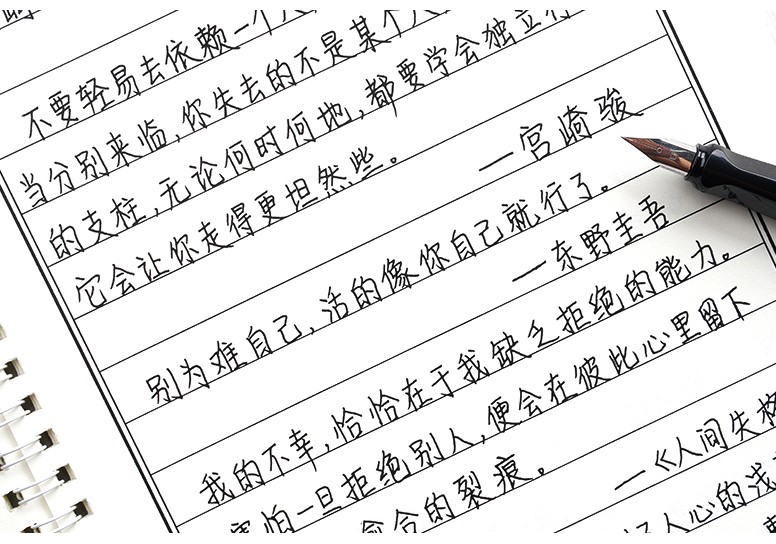 不要轻易去依赖一个人
当分别来临,你失去的不是某个人
的支柱,无论何时何地,都要学会独立行
它会让你走得更坦然些。
—宫崎骏
别为难自己,活的像你自己就行了。
—东野圭吾
我的不幸,恰恰在于我缺乏拒绝的能力。
害怕一旦拒绝别人,便会在彼此心里留下
愈合的裂痕。
—《人间失格
人心的浅